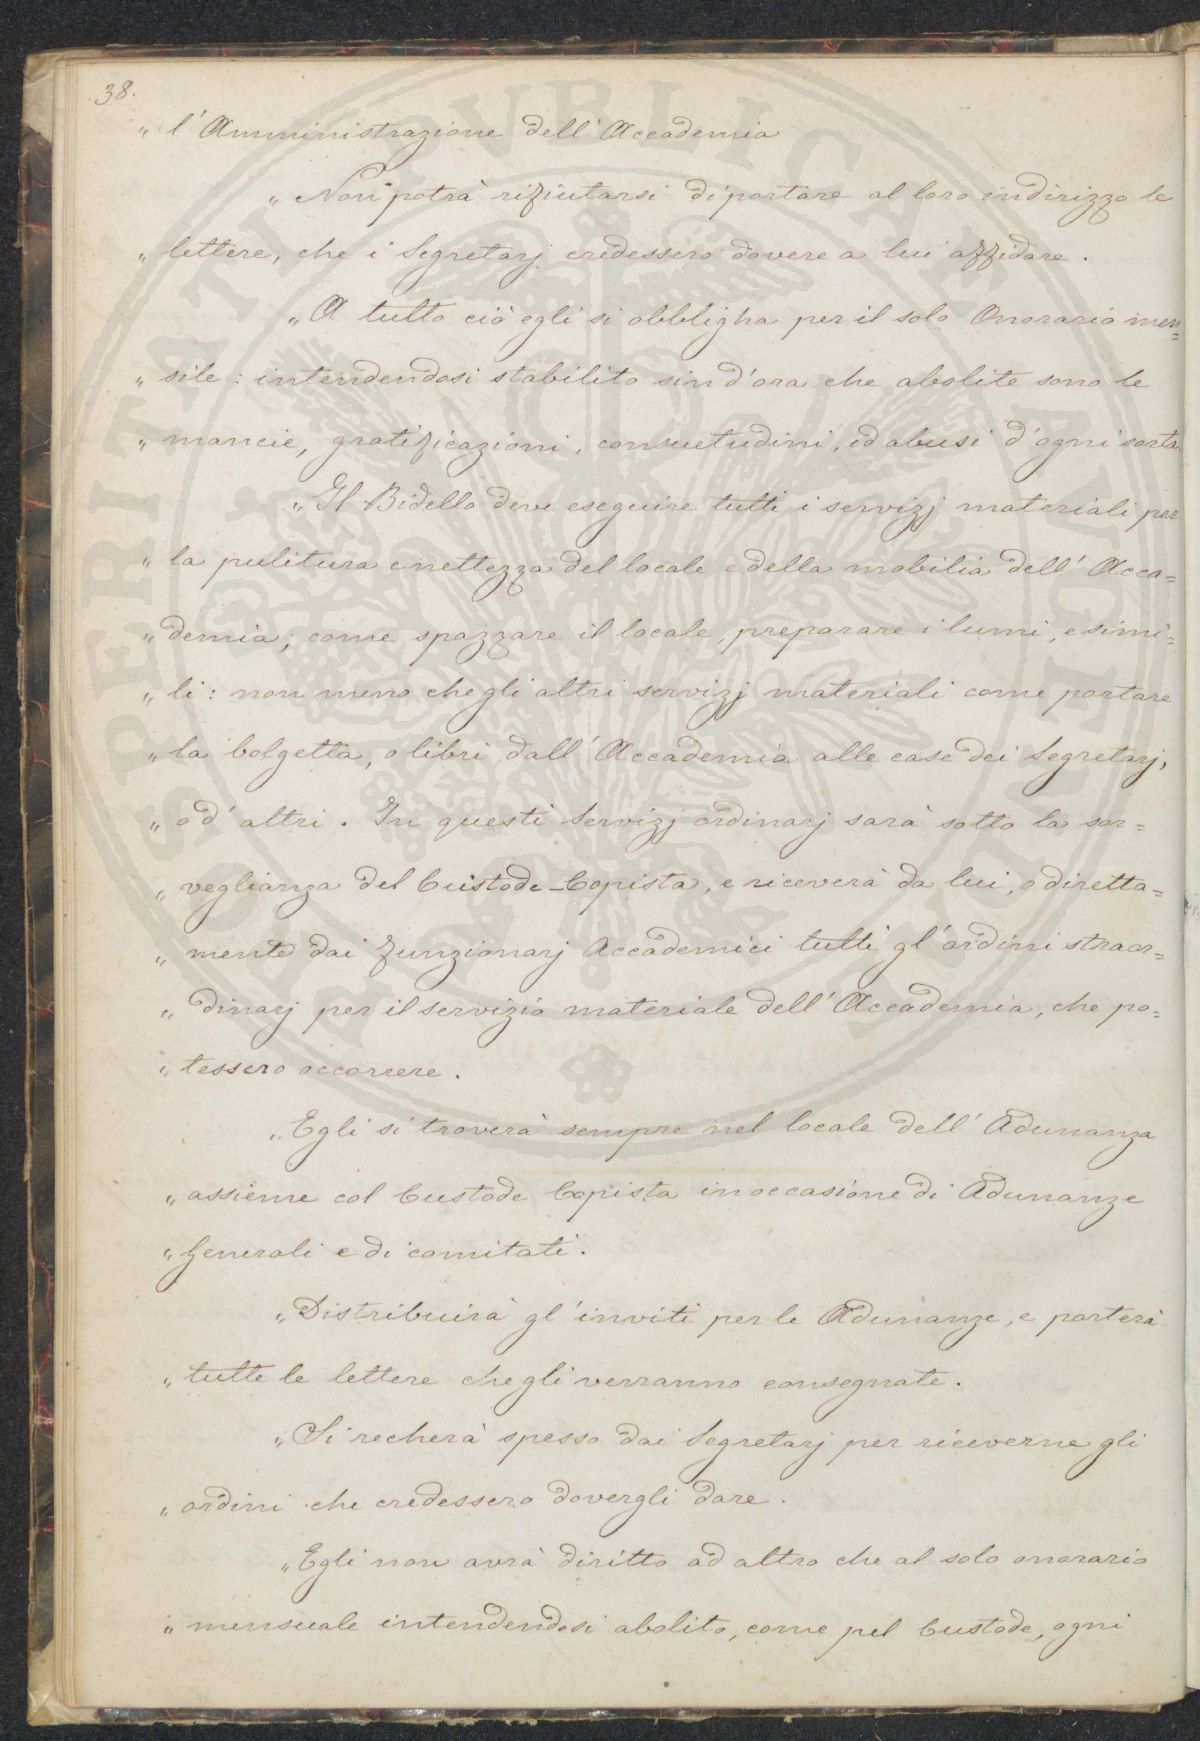 38.
„ l'Amministrazione dell'Accademia
„ Non potrà rifiutarsi di portare al loro indirizzo le
„ lettere, che i Segretarj credessero dovere a lui affidare.
„ A tutto ciò egli si obbligha per il solo Onorario men=
„ sile: intendendosi stabilito sin d'ora che abolite sono le
„ mancie, gratificazioni, consuetudini, ed abusi d'ogni sorta
„ Il Bidello deve eseguire tutti i servizj materiali per
„ la pulitura e nettezza del locale e della mobilia dell'Acca=
„ demia; come spazzare il locale, preparare i lumi, e simi=
„ li: non meno che gli altri servizj materiali come portare
„ la bolgetta, o libri dall'Accademia alle case dei Segretarj,
„ od'altri. In questi Servizj ordinarj sarà sotto la sor=
„ veglianza del Custode-Copista, e riceverà da lui, o diretta=
„ mente dai funzionarj Accademici tutti gl'ordini straor=
„ dinarj per il servizio materiale dell'Accademia, che po=
„ tessero occorrere.
„ Egli si troverà sempre nel locale dell'Adunanza
„ assieme col Custode Copista in occasione di Adunanze
„ Generali e di comitati.
„ Distribuirà gl'inviti per le Adunanze, e porterà
„ tutte le lettere che gli verranno consegnate.
„ Si recherà spesso dai Segretarj per riceverne gli
„ ordini che credessero dovergli dare.
„ Egli non avrà diritto ad altro che al solo onorario
„ mensuale intendendosi abolito, come pel Custode, ogni
PROSPERITATI PVBLICAE AVGENDAE